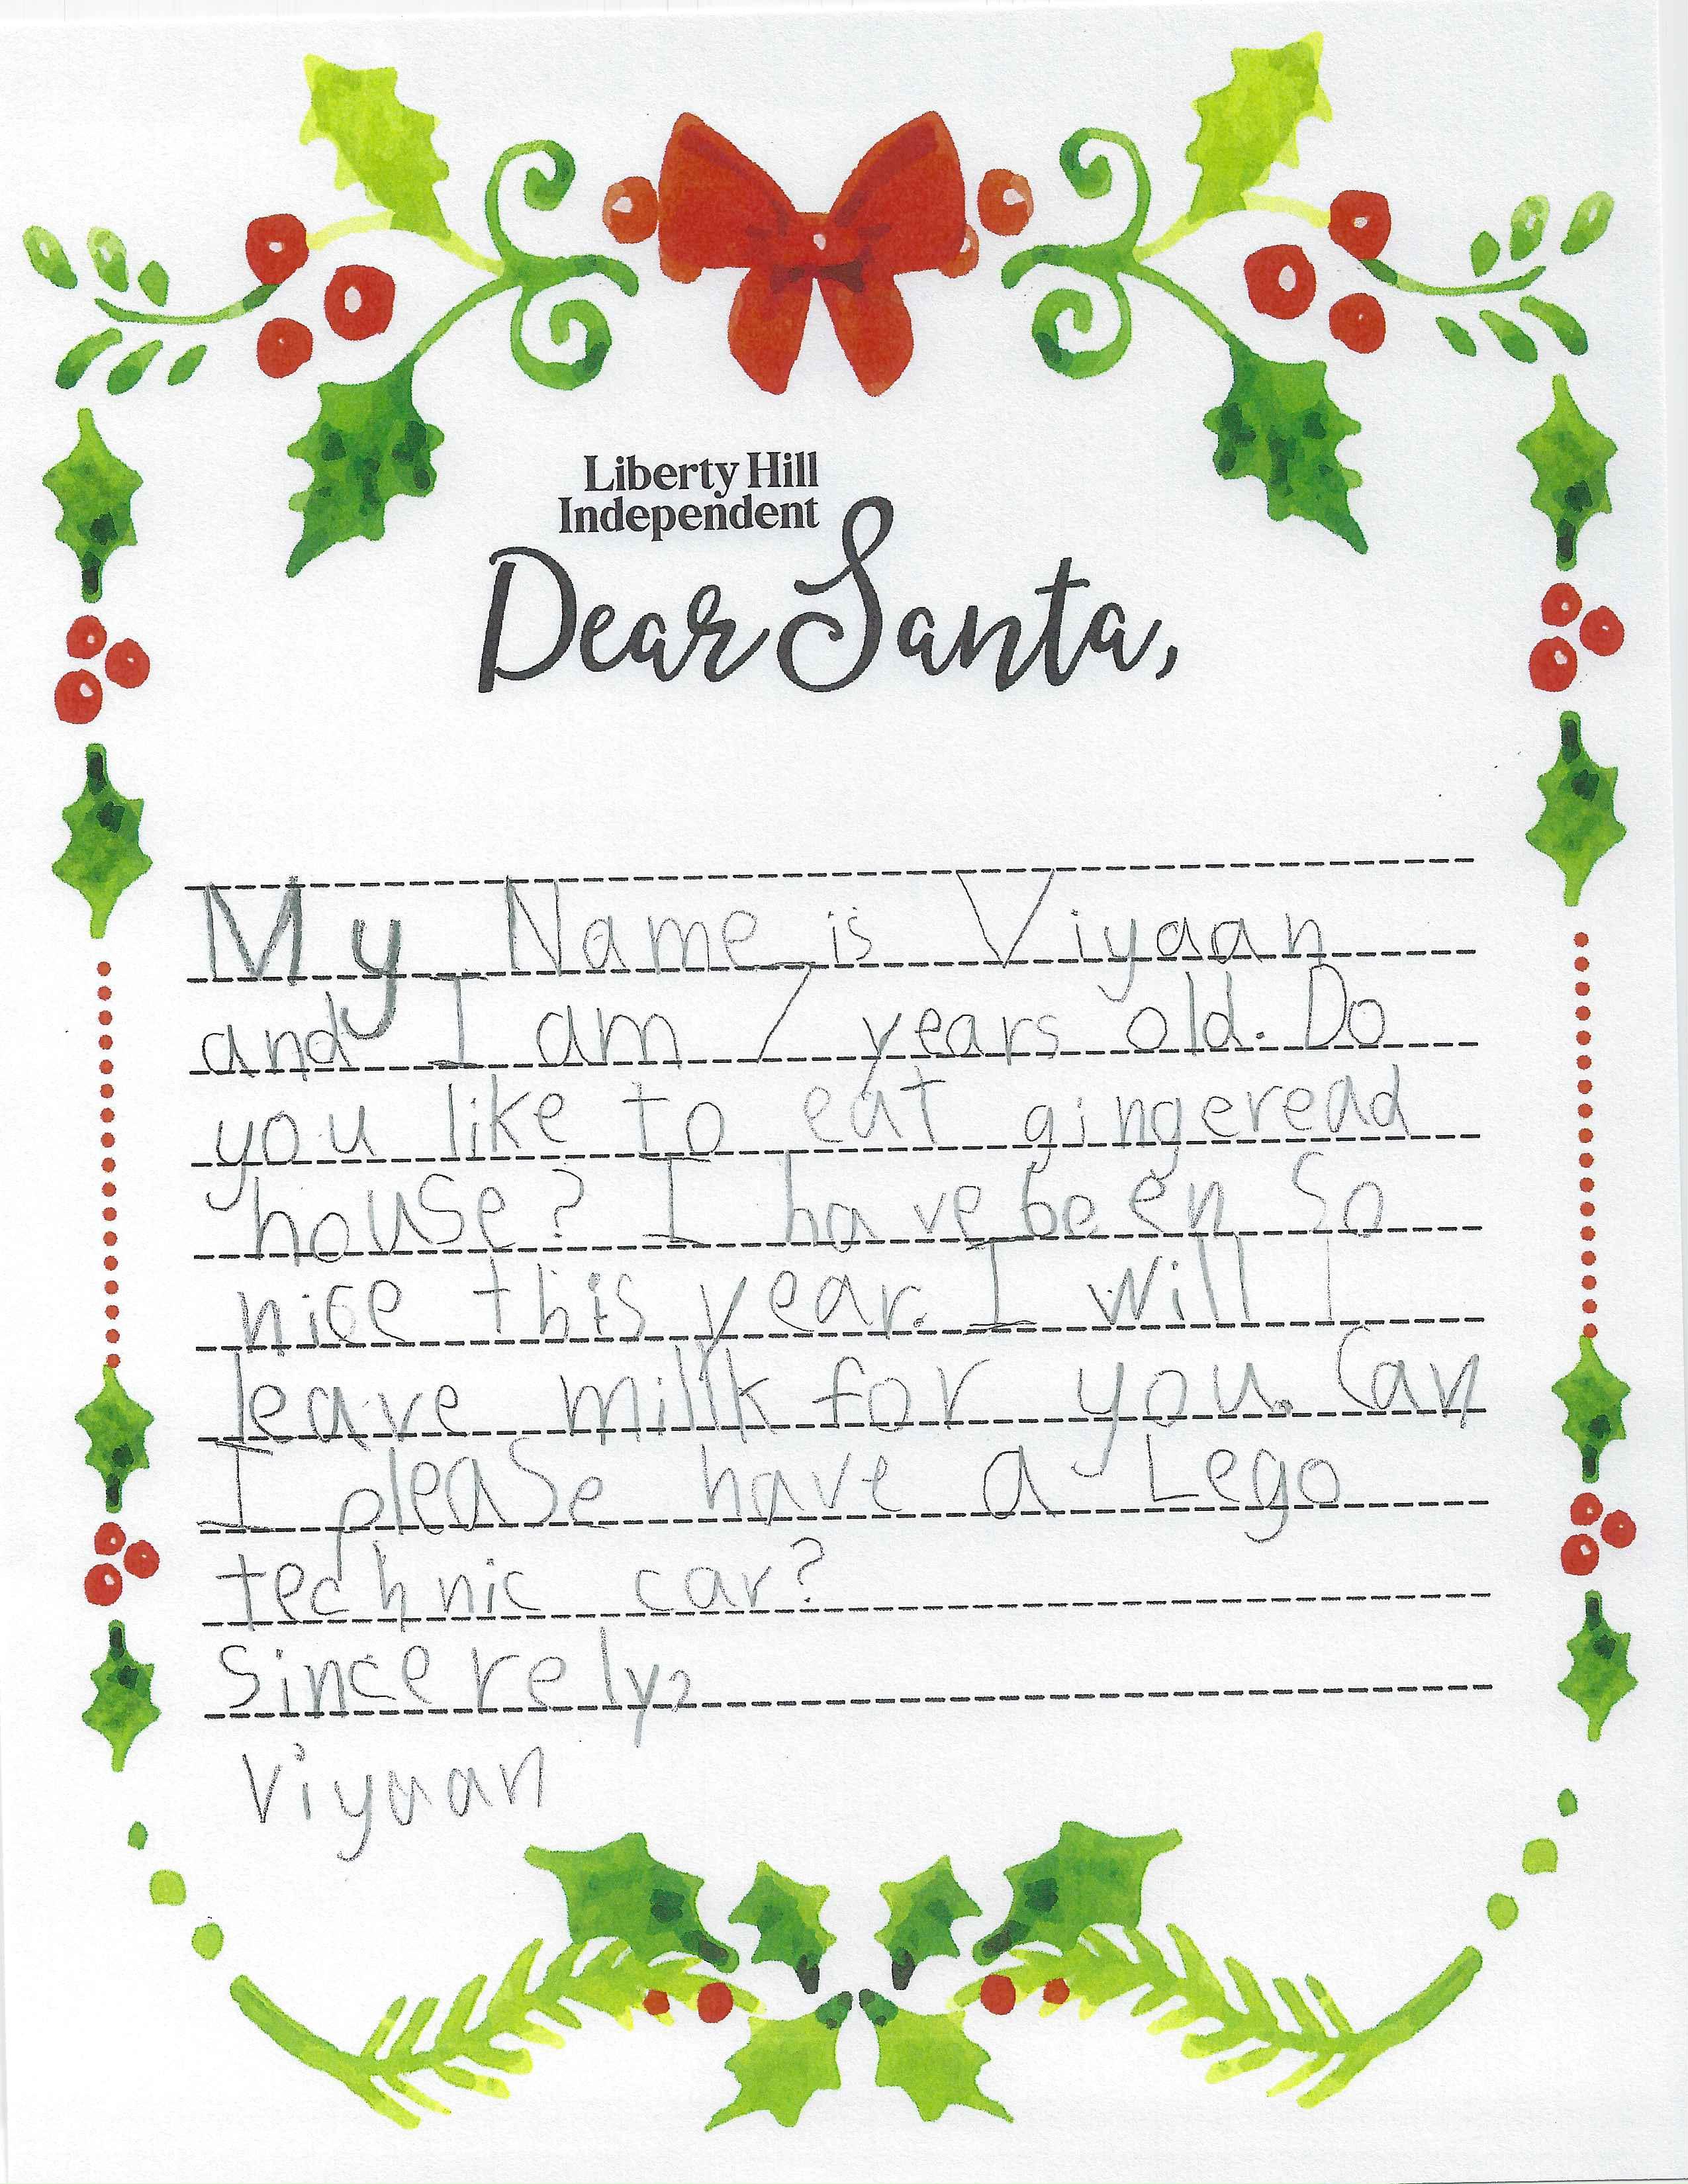 Liberty Hill
Independent
Dear Santa,
My Name is Viyaan
and I am 7 years old. Do
you like to eat gingeread
house? I have been so
nice this year. I will l
leave millk for you. Can
I please have a Lego
technic car?
Sincerely,
Viyaan